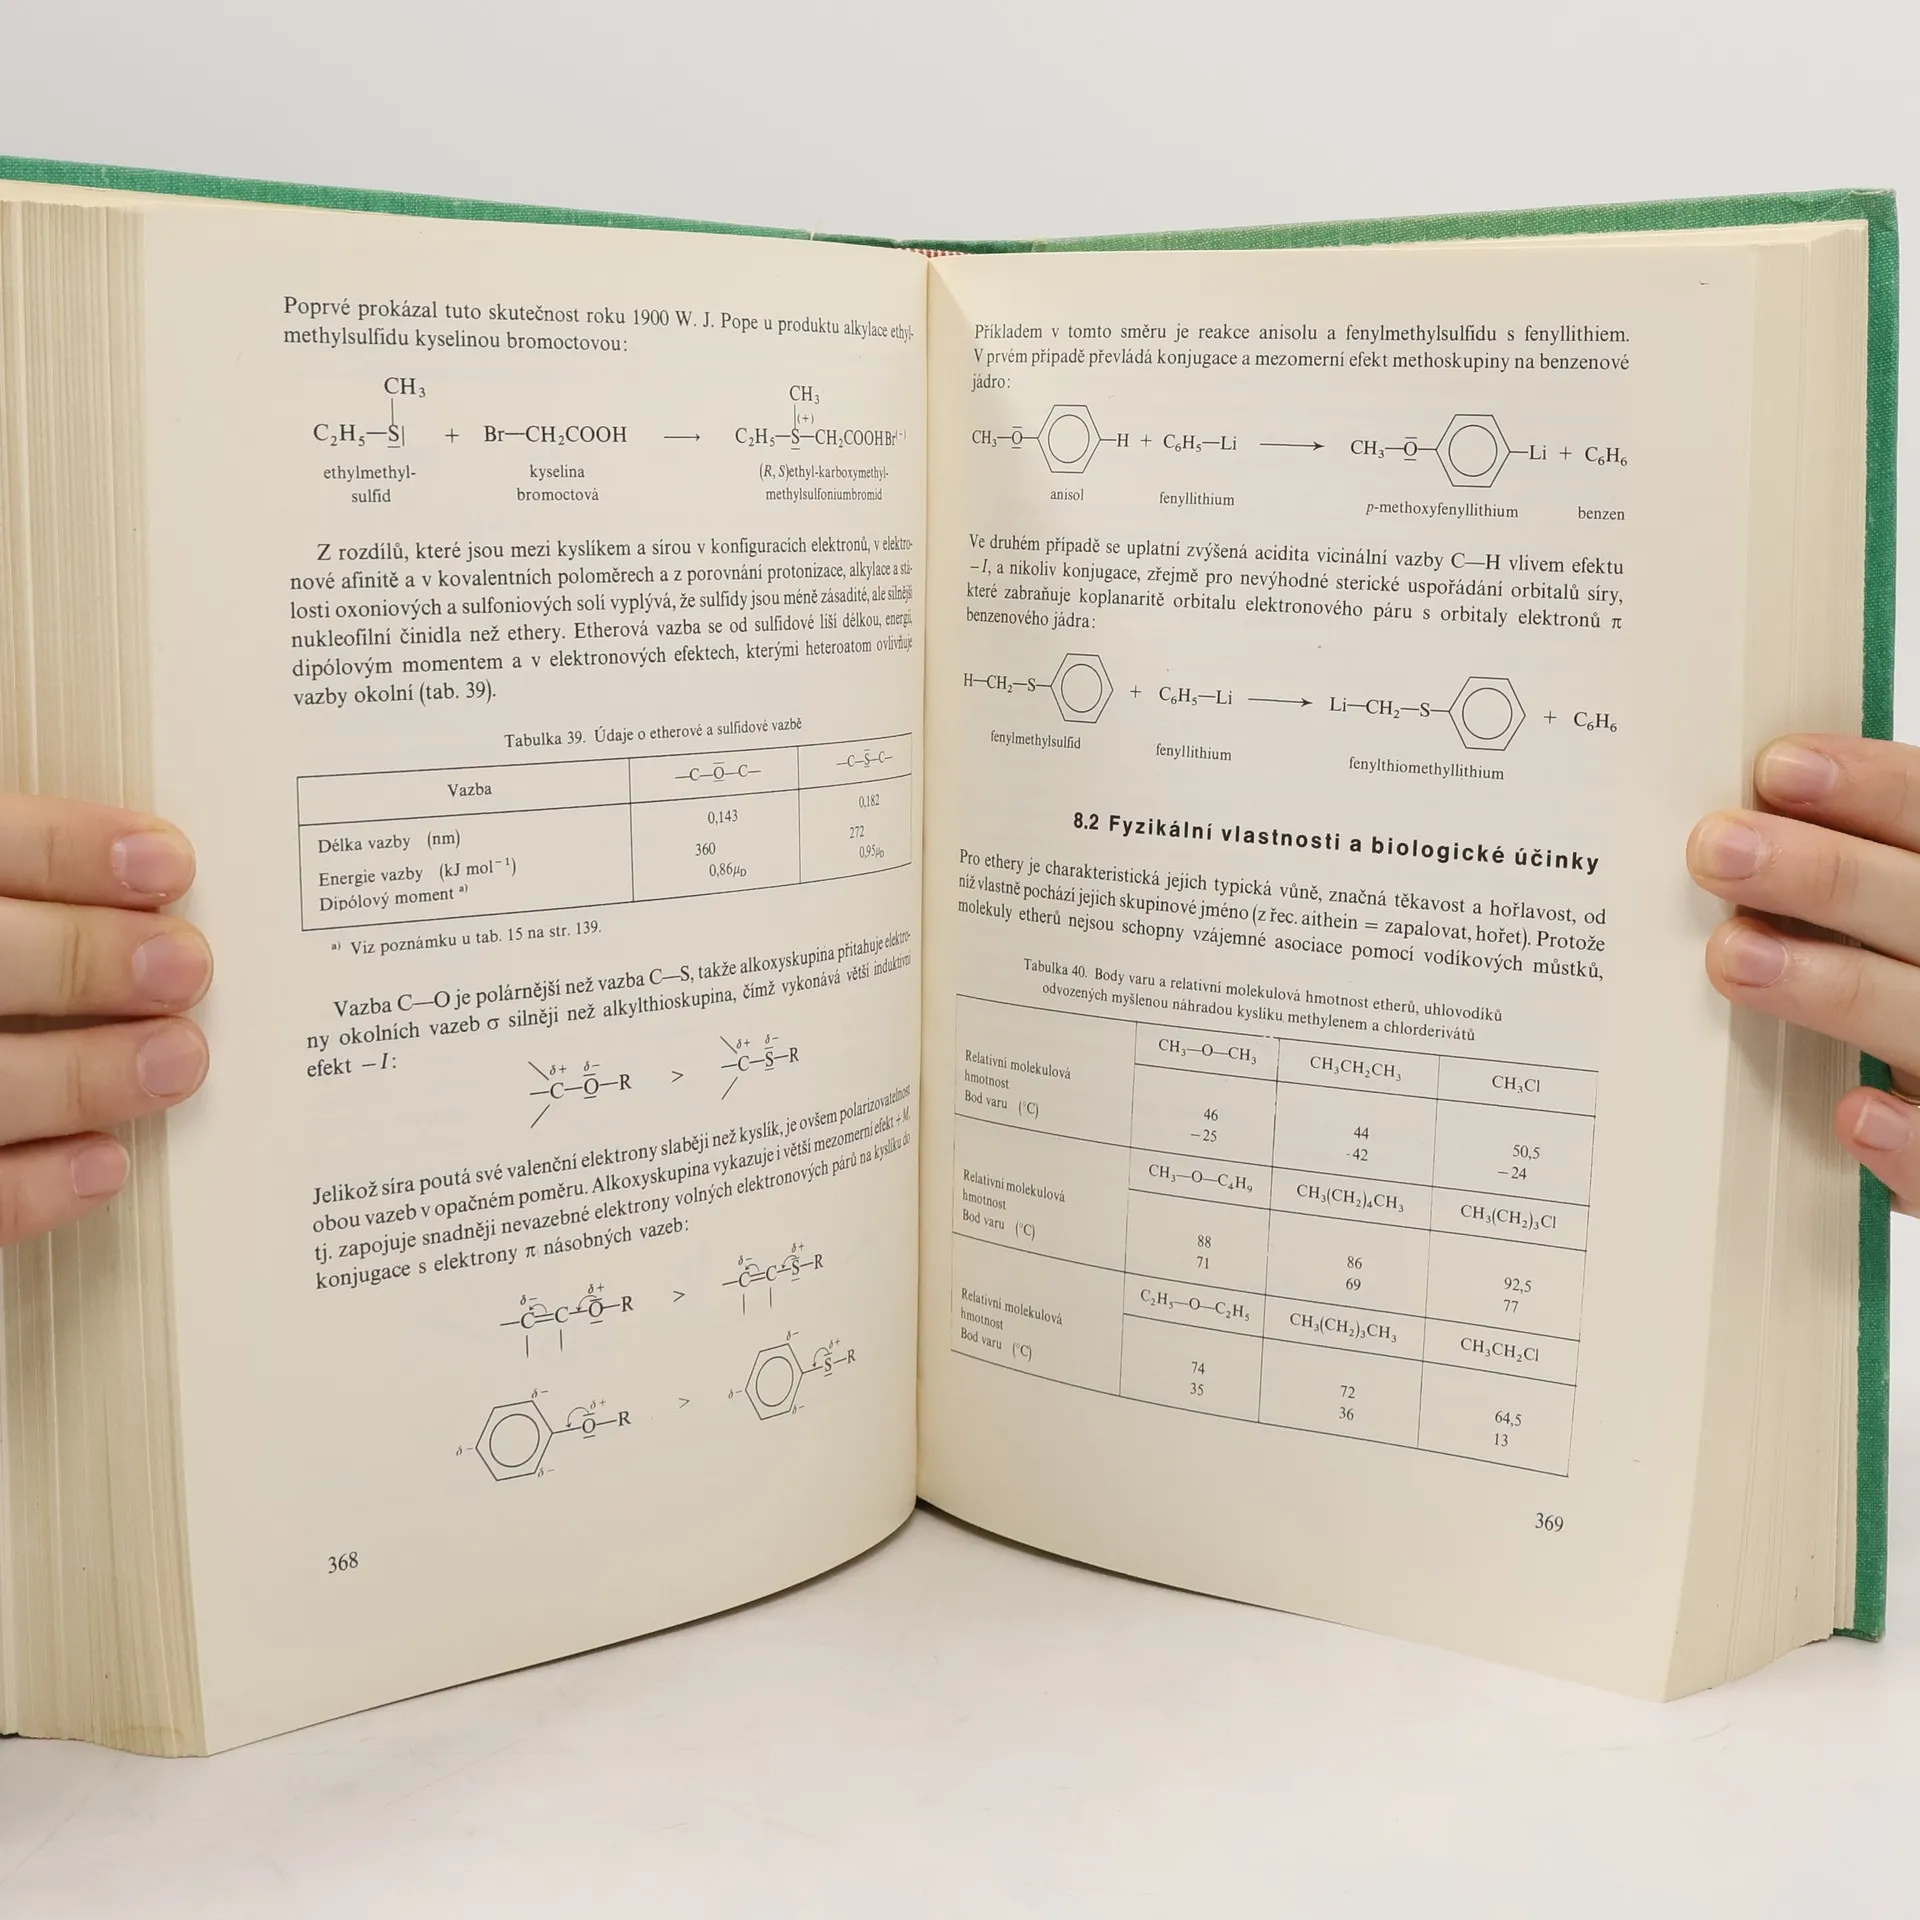 Poprvé prokázal tuto skutečnost roku 1900 W. J. Pope u produktu alkylace ethyl-
methylsulfidu kyselinou bromoctovou:
CH3
C2H5—S| + Br—CH2COOH ⟶ C2H5—S—CH2COOHBr(−)
CH3
(+)
ethylmethyl-
sulfid
kyselina
bromoctová
(R, S)ethyl-karboxymethyl-
methylsulfoniumbromid
Z rozdílů, které jsou mezi kyslíkem a sírou v konfiguracích elektronů, v elektro-
nové afinitě a v kovalentních poloměrech a z porovnání protonizace, alkylace a stá-
losti oxoniových a sulfoniových solí vyplývá, že sulfidy jsou méně zásadité, ale silnější
nukleofilní činidla než ethery. Etherová vazba se od sulfidové liší délkou, energií,
dipólovým momentem a v elektronových efektech, kterými heteroatom ovlivňuje
vazby okolní (tab. 39).
Tabulka 39. Údaje o etherové a sulfidové vazbě
Vazba —C—O—C— —C—S—C—
Délka vazby (nm) 0,143 0,182
Energie vazby (kJ mol−1) 360 272
Dipólový moment a) 0,86μD 0,95μD
a) Viz poznámku u tab. 15 na str. 139.
Vazba C—O je polárnější než vazba C—S, takže alkoxyskupina přitahuje elektro-
ny okolních vazeb σ silněji než alkylthioskupina, čímž vykonává větší induktivní
efekt −I:
δ+ δ− δ+ δ−
—C—O—R > —C—S—R
Jelikož síra poutá své valenční elektrony slaběji než kyslík, je ovšem polarizovatelnost
obou vazeb v opačném poměru. Alkoxyskupina vykazuje i větší mezomerní efekt +M,
tj. zapojuje snadněji nevazebné elektrony volných elektronových párů na kyslíku do
konjugace s elektrony π násobných vazeb:
δ− δ+ δ− δ+
—C=C—O—R > —C=C—S—R
δ− δ+ δ− δ+
O—R > S—R
δ− δ− δ− δ−
368
Příkladem v tomto směru je reakce anisolu a fenylmethylsulfidu s fenyllithiem.
V prvém případě převládá konjugace a mezomerní efekt methoskupiny na benzenové
jádro:
CH3—O— —H + C6H5—Li ⟶ CH3—O— —Li + C6H6
anisol fenyllithium p-methoxyfenyllithium benzen
Ve druhém případě se uplatní zvýšená acidita vicinální vazby C—H vlivem efektu
−I, a nikoliv konjugace, zřejmě pro nevýhodné sterické uspořádání orbitalů síry,
které zabraňuje koplanaritě orbitalu elektronového páru s orbitaly elektronů π
benzenového jádra:
H—CH2—S— + C6H5—Li ⟶ Li—CH2—S— + C6H6
fenylmethylsulfid fenyllithium fenylthiomethyllithium
8.2 Fyzikální vlastnosti a biologické účinky
Pro ethery je charakteristická jejich typická vůně, značná těkavost a hořlavost, od
níž vlastně pochází jejich skupinové jméno (z řec. aithein = zapalovat, hořet). Protože
molekuly etherů nejsou schopny vzájemné asociace pomocí vodíkových můstků,
Tabulka 40. Body varu a relativní molekulová hmotnost etherů, uhlovodíků
odvozených myšlenou náhradou kyslíku methylenem a chlorderivátů
CH3—O—CH3 CH3CH2CH3 CH3Cl
Relativní molekulová
hmotnost 46 44 50,5
Bod varu (°C) −25 -42 −24
CH3—O—C4H9 CH3(CH2)4CH3 CH3(CH2)3Cl
Relativní molekulová
hmotnost 88 86 92,5
Bod varu (°C) 71 69 77
C2H5—O—C2H5 CH3(CH2)3CH3 CH3CH2Cl
Relativní molekulová
hmotnost 74 72 64,5
Bod varu (°C) 35 36 13
369